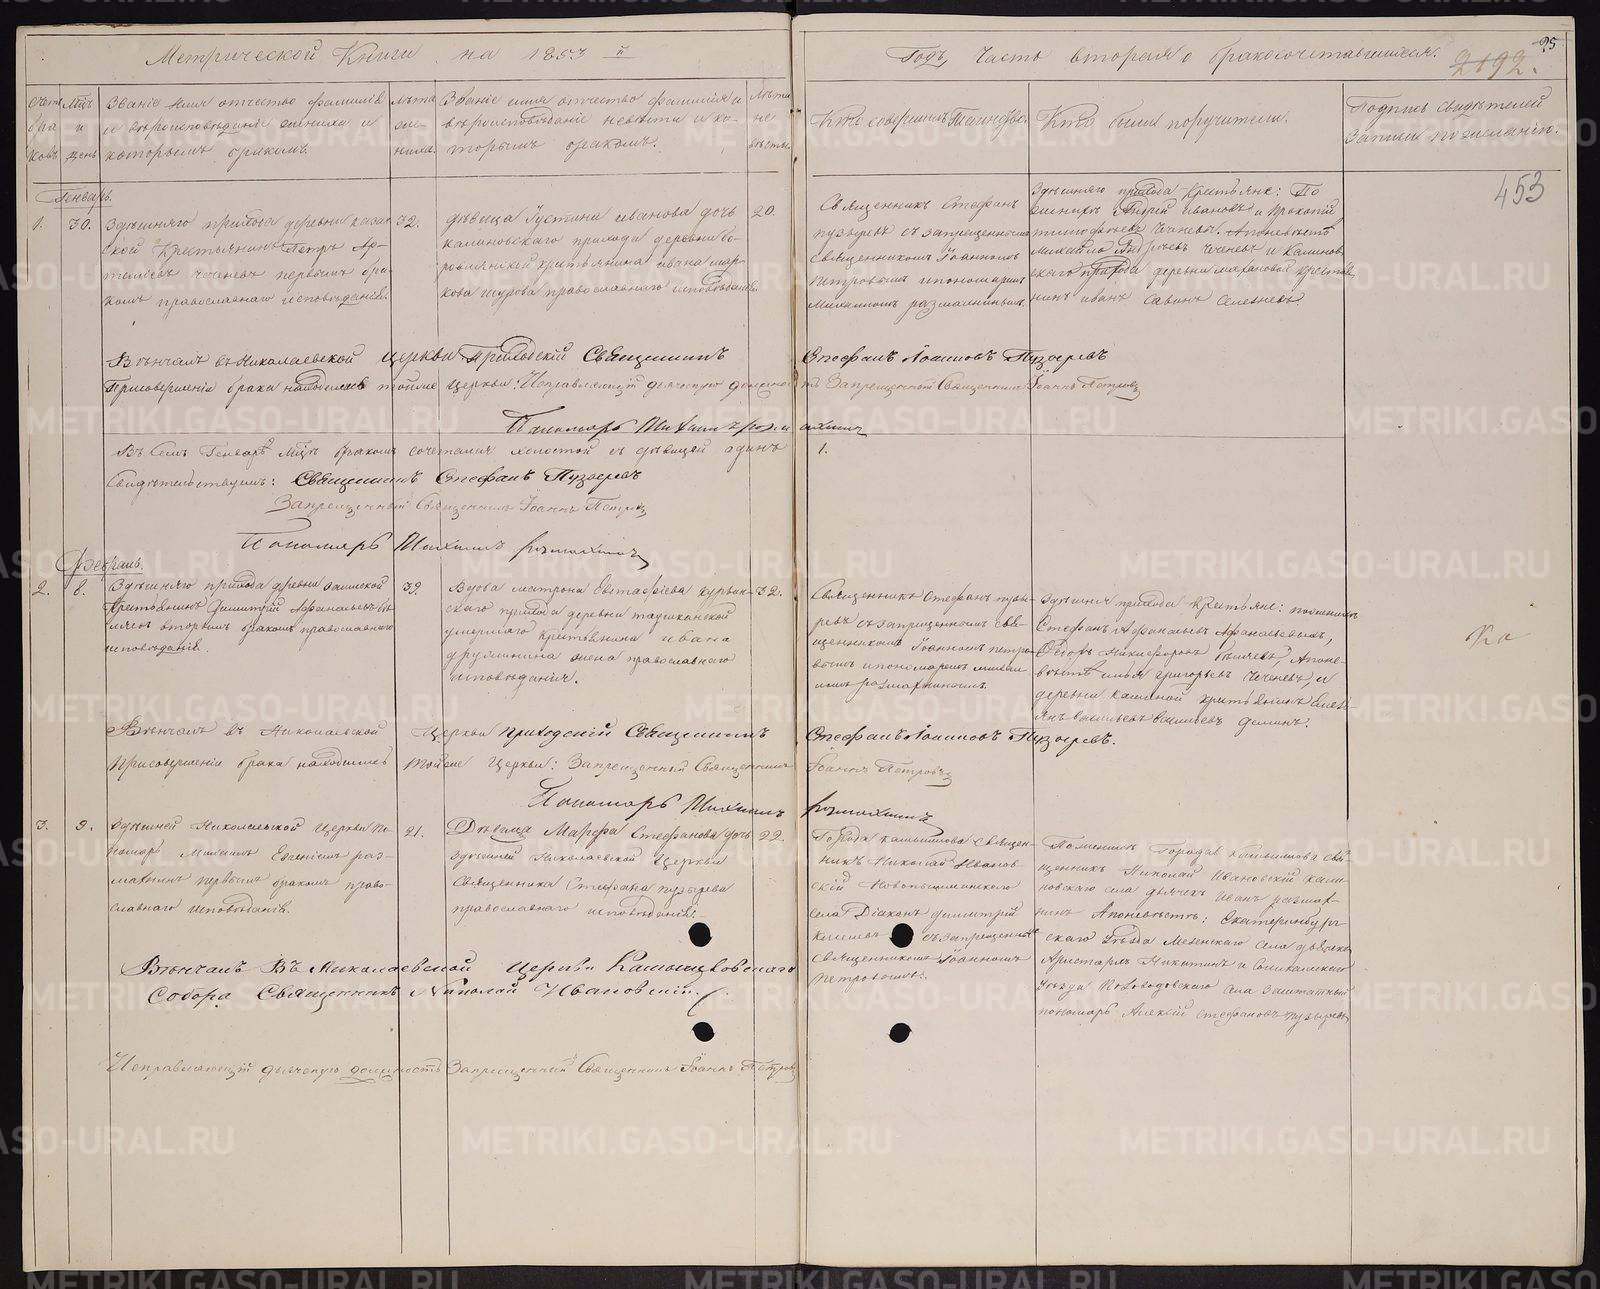 Метрической Книги на 1853 й
Годъ, Часть вторая о бракосочетавшихся.
95
2192.
453
Счетъ браковъ
Мцъ и день
Званіе имя отчество фамилія
и вѣроисповѣданіе жениха и
которымъ бракомъ.
лѣта жениха.
Званіе имя отчество фамилія и
вѣроисповѣданіе невѣсты и ко-
торымъ бракомъ.
Лѣта невѣсты.
Кто совершилъ Таинство.
Кто были поручители.
Подпись свидѣтелей
записи по желанію.
Генварь.
1. 30.
Здѣшняго прихода деревни казан
ской крестьянинъ Петръ Ар-
темьевъ Чеченевъ первымъ бра-
комъ православнаго исповѣданія.
32.
дѣвица Іустина иванова дочь
калиновскаго прихода деревни бо-
ровлянской крестьянина ивана мар-
кова шурова православнаго исповѣданія.
20.
Священникъ Стефанъ
пузыревъ съ запрещеннымъ
Священникомъ Іоанномъ
Петровымъ и пономаремъ
Михаиломъ размахнинымъ.
Здѣшняго прихода Крестьяне: По
женихѣ Андрей Ивановъ и Прокопій
тимофѣевъ Чеченевы. А по невѣстѣ
Михайло Андреевъ Чеченевъ и Калинов
скаго прихода деревни крестья
нинъ иванъ Савинъ Селезневъ.
Вѣнчалъ въ Николаевской церкви Приходскій Священникъ Стефанъ Іоанновъ Пузыревъ
При совершеніи брака находились тойже Церкви: Исправляющій дьяческую должность Запрещенный Священникъ Іоаннъ Петровъ
Пономарь Михаилъ размахнинъ
Въ семъ Генварѣ Мцѣ бракомъ сочетался холостой съ дѣвицей одинъ 1.
Свидѣтельствуемъ: Священникъ Стефанъ Пузыревъ
Запрещенный Священникъ Іоаннъ Петровъ
Пономарь Михаилъ размахнинъ
Февраль.
2. 8.
Здѣшняго прихода деревни заимской
Крестьянинъ Димитрій Афанасьевъ бѣ-
ляевъ вторымъ бракомъ православнаго
исповѣданія.
39.
Вдова матрона Евстафіева курьин-
скаго прихода деревни
умершаго крестьянина ивана
дружинина жена православнаго
исповѣданія.
32.
Священникъ Стефанъ пузы-
ревъ съ запрещеннымъ свя-
щенникомъ Іоанномъ петро-
вымъ и пономаремъ михаи
ломъ размахнинымъ.
Здѣшняго прихода Крестьяне: по женихѣ
Стефанъ Афанасьевъ
Ѳедоръ Никифоровъ А по не-
вѣстѣ илья григорьевъ Чеченевъ, и
деревни крестьянинъ Емель-
янъ васильевъ деминъ.
Ко
Вѣнчалъ въ Николаевской Церкви Приходскій Священникъ Стефанъ Іоанновъ Пузыревъ.
При совершеніи брака находились тойже Церкви: Запрещенный Священникъ Іоаннъ Петровъ
Пономарь Михаилъ размахнинъ
3. 9.
Здѣшней Николаевской Церкви По-
номарь Михаилъ Евгеніевъ раз-
махнинъ первымъ бракомъ право-
славнаго исповѣданія.
21.
Дѣвица Марфа Стефанова дочь
Здѣшней Николаевской Церкви
Священника Стефана пузырева
православнаго исповѣданія.
22.
Города камышлова Священ-
никъ Николай Иванов
скій Новопышминскаго
села Діаконъ димитрій
съ запрещеннымъ
священникомъ Іоанномъ
Петровымъ.
По женихѣ Города Камышлова свя-
щенникъ Николай Ивановскій кали-
новскаго села дьячекъ иванъ размах-
нинъ А по невѣстѣ: Екатеринбург-
скаго уѣзда Мезенскаго села дьячекъ
Аристархъ Никитинъ и
уѣзда села заштатный
пономарь Алексѣй Стефановъ пузыревъ
Вѣнчалъ Въ Николаевской Церкви Камышловскаго
Собора Священникъ Николай Ивановскій.
Исправляющій дьяческую должность Запрещенный Священникъ Іоаннъ Петровъ
METRIKI.GASO-URAL.RU